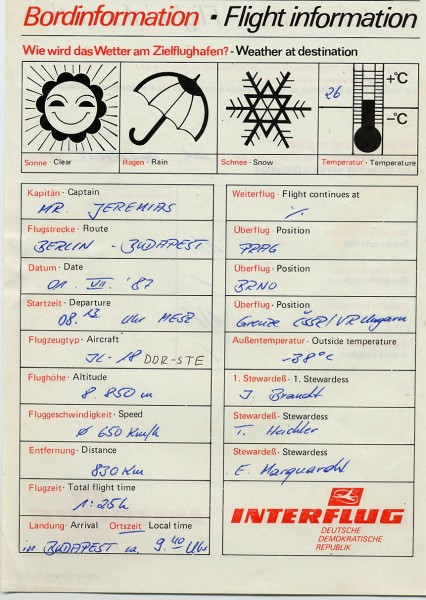 Bordinformation · Flight information
Wie wird das Wetter am Zielflughafen? - Weather at destination
26
+°C
−°C
Sonne · Clear
Regen · Rain
Schnee · Snow
Temperatur · Temperature
Kapitän · Captain
MR. JEREMIAS
Flugstrecke · Route
BERLIN - BUDAPEST
Datum · Date
01. VII. '87
Startzeit · Departure
08.13 Uhr MESZ
Flugzeugtyp · Aircraft
IL-18 DDR-STE
Flughöhe · Altitude
8.850 m
Fluggeschwindigkeit · Speed
Ø 650 Km/h
Entfernung · Distance
830 Km
Flugzeit · Total flight time
1:25h
Landung · Arrival Ortszeit · Local time
in BUDAPEST ca. 9.40 Uhr
Weiterflug · Flight continues at
·/.
Überflug · Position
PRAG
Überflug · Position
BRNO
Überflug · Position
Grenze ČSSR/VR Ungarn
Außentemperatur · Outside temperature
-38°C
1. Stewardeß · 1. Stewardess
J. Brandt
Stewardeß · Stewardess
T. Heichler
Stewardeß · Stewardess
E. Marquardt
INTERFLUG
DEUTSCHE
DEMOKRATISCHE
REPUBLIK